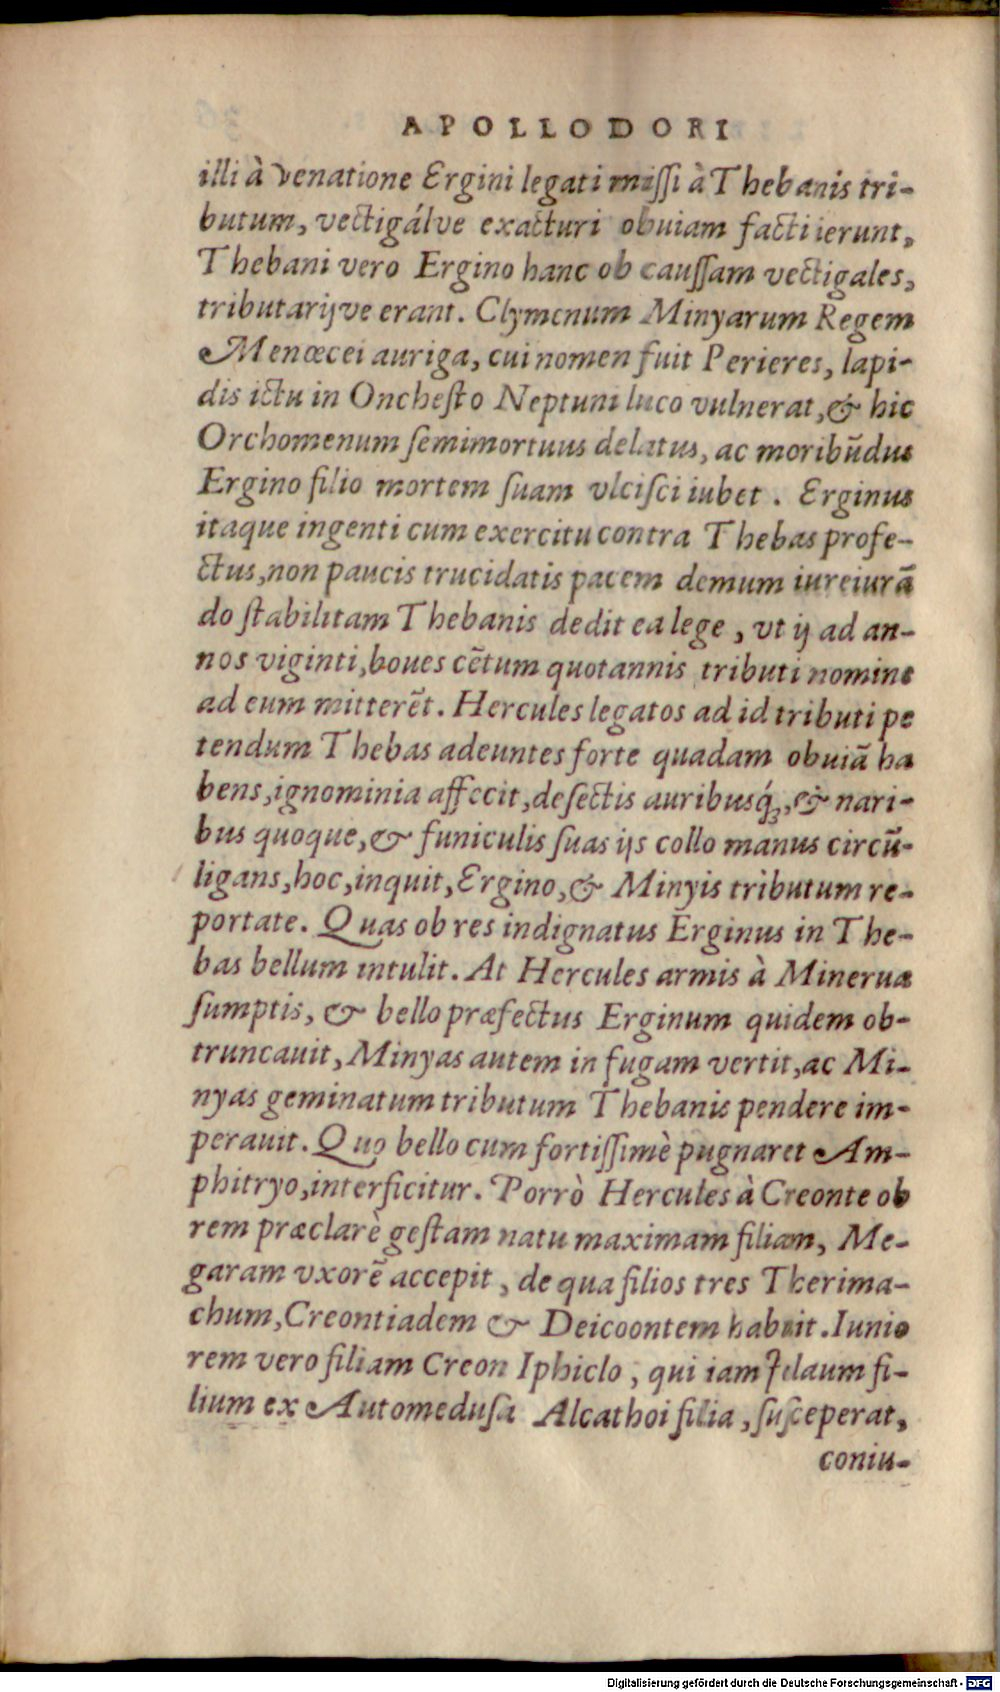 APOLLODORI
illi à venatione Ergini legati missi à Thebanis tri-
butum, vectigálve exacturi obuiam facti ierunt,
Thebani vero Ergino hanc ob caussam vectigales,
tributarijve erant. Clymenum Minyarum Regem
Menœcei auriga, cui nomen fuit Perieres, lapi-
dis ictu in Onchesto Neptuni luco vulnerat, & hic
Orchomenum semimortuus delatus, ac moribũdus
Ergino filio mortem suam vlcisci iubet. Erginus
itaque ingenti cum exercitu contra Thebas profe-
ctus, non paucis trucidatis pacem demum iureiurã
do stabilitam Thebanis dedit ea lege, vt ij ad an-
nos viginti, boues cẽtum quotannis tributi nomine
ad eum mitterẽt. Hercules legatos ad id tributi pe
tendum Thebas adeuntes forte quadam obuiã ha
bens, ignominia affecit, desectis auribusq́;, & nari-
bus quoque, & funiculis suas ijs collo manus circũ-
ligans, hoc, inquit, Ergino, & Minyis tributum re-
portate. Quas ob res indignatus Erginus in The-
bas bellum intulit. At Hercules armis à Minerua
sumptis, & bello præfectus Erginum quidem ob-
truncauit, Minyas autem in fugam vertit, ac Mi-
nyas geminatum tributum Thebanis pendere im-
perauit. Quo bello cum fortissimè pugnaret Am-
phitryo, interficitur. Porrò Hercules à Creonte ob
rem præclarè gestam natu maximam filiam, Me-
garam vxorẽ accepit, de qua filios tres Therima-
chum, Creontiadem & Deicoontem habuit. Iunio
rem vero filiam Creon Iphiclo, qui iam Iolaum fi-
lium ex Automedusa Alcathoi filia, susceperat,
coniu-
Digitalisierung gefördert durch die Deutsche Forschungsgemeinschaft - DFG